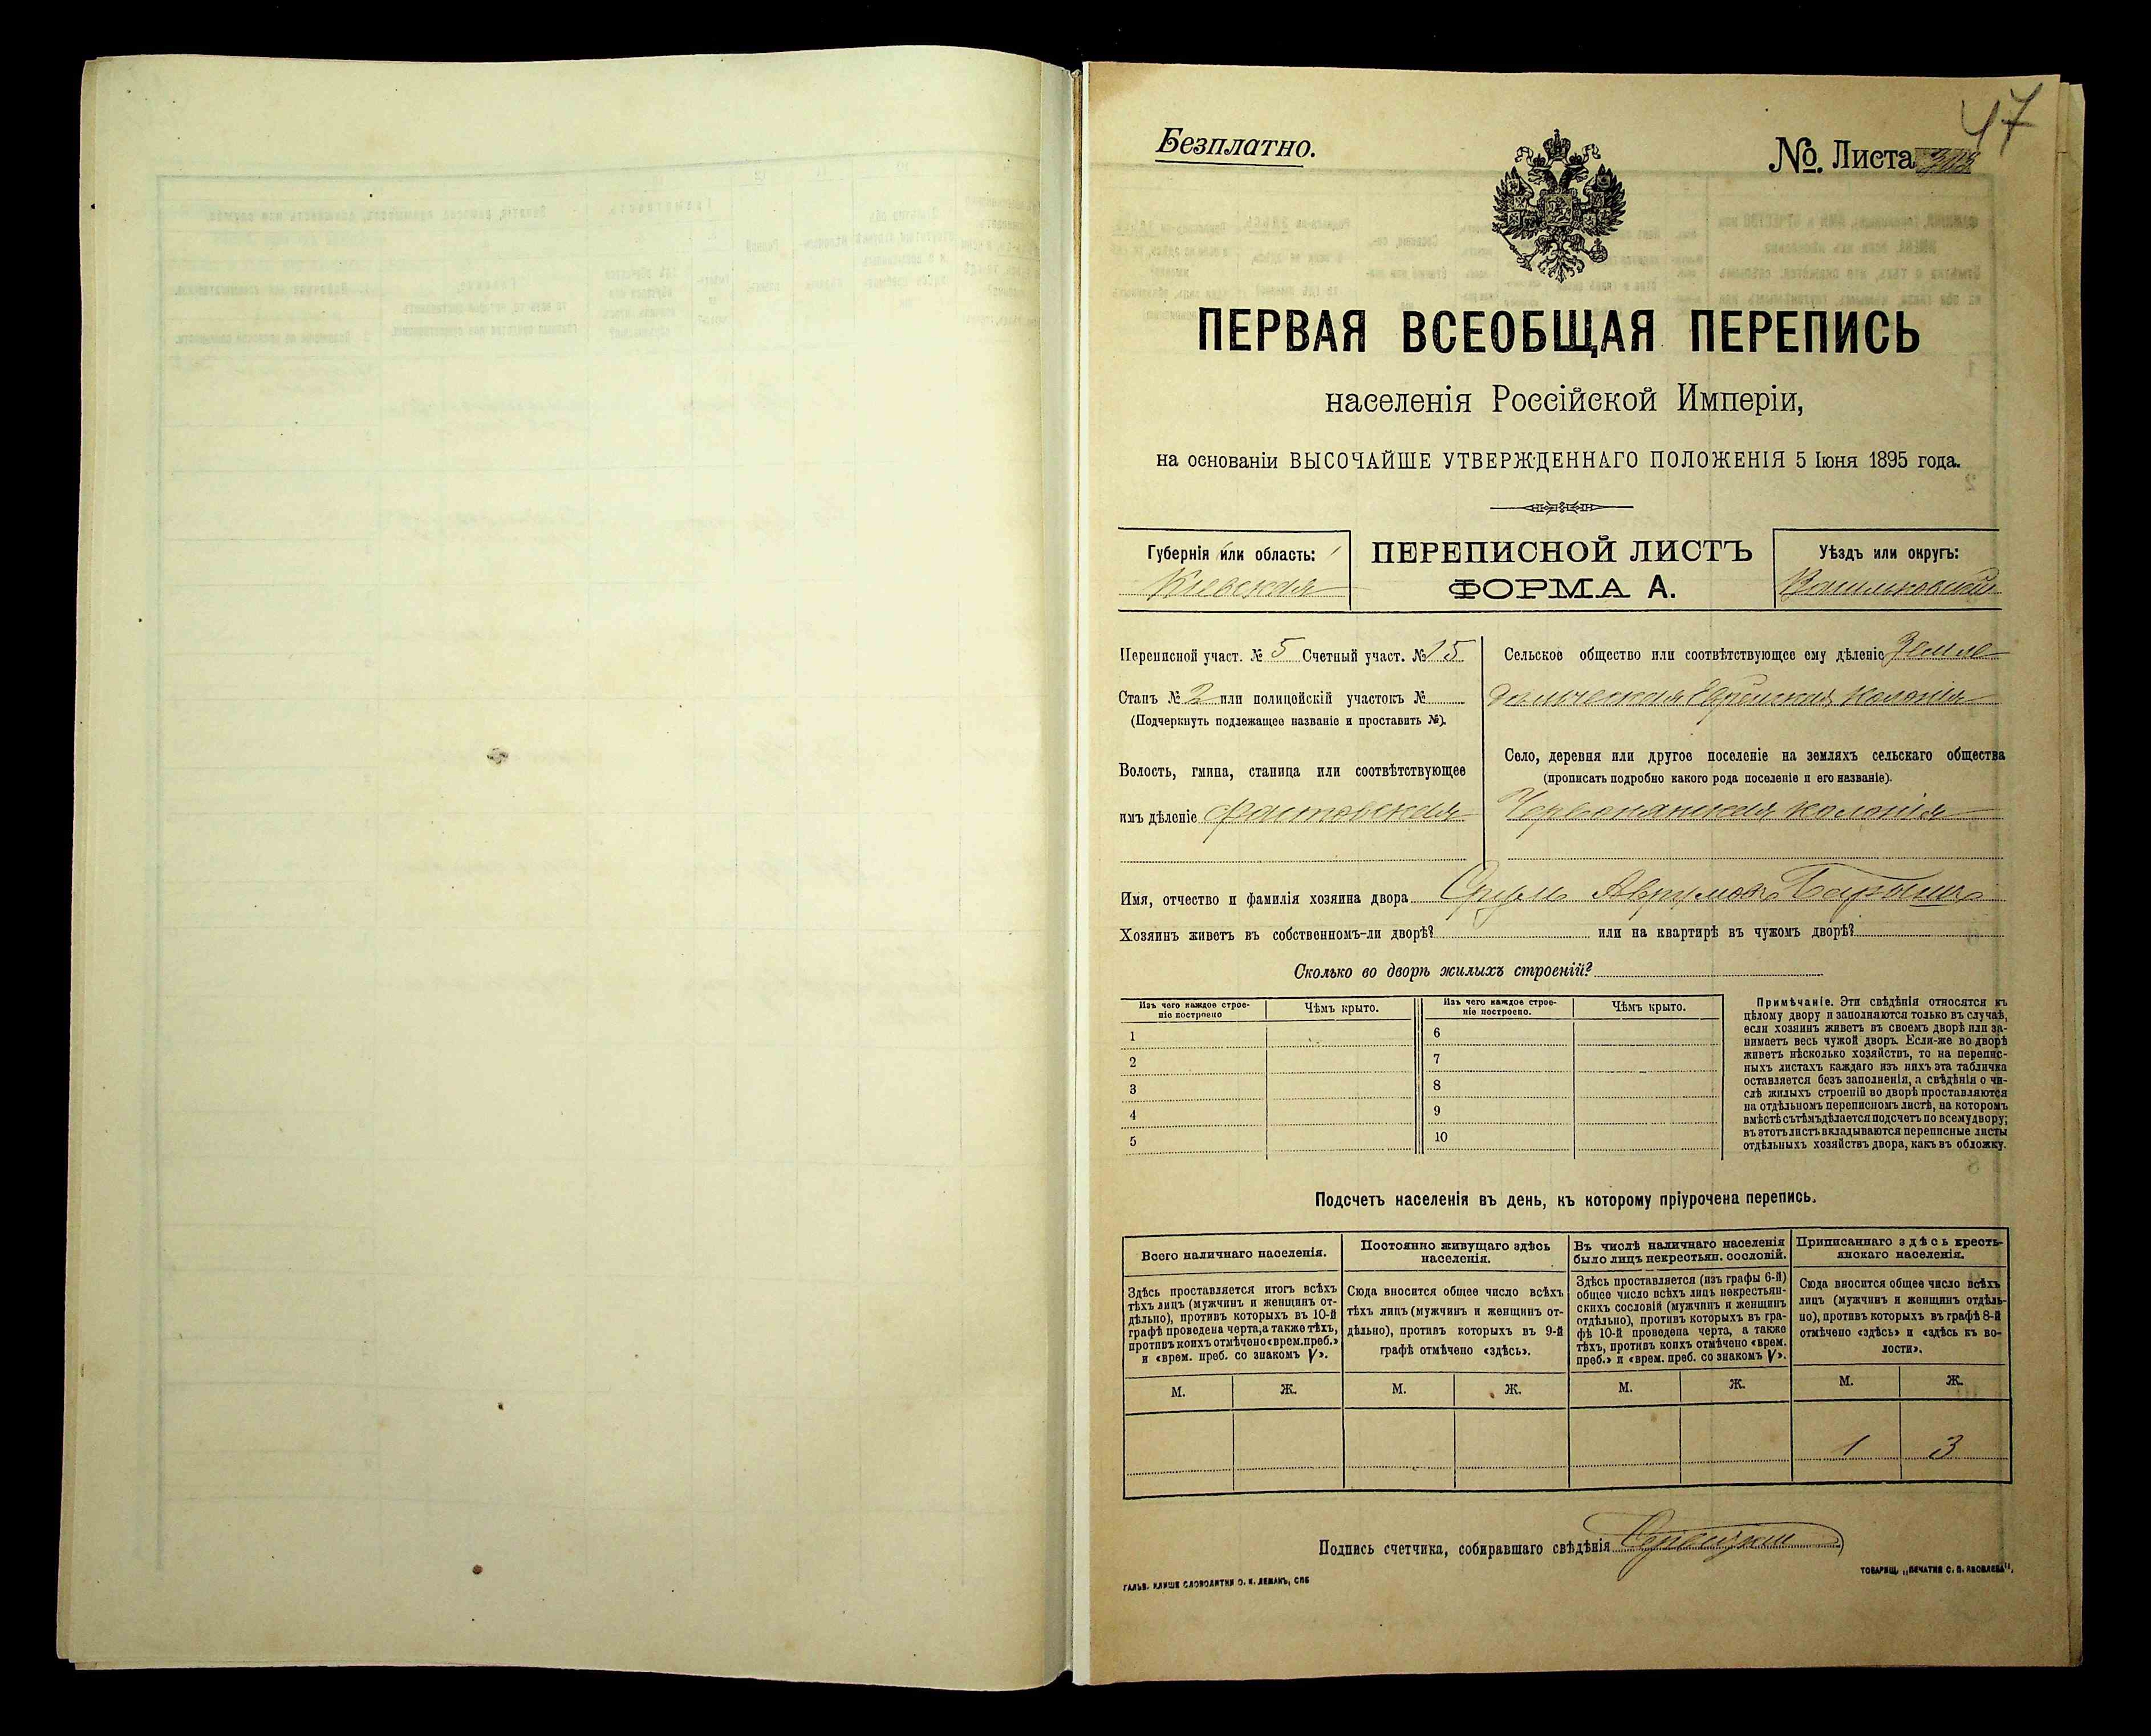 47
Безплатно.
№. Листа
ПЕРВАЯ ВСЕОБЩАЯ ПЕРЕПИСЬ
населенія Россійской Имперіи,
на основаніи ВЫСОЧАЙШЕ УТВЕРЖДЕННАГО ПОЛОЖЕНІЯ 5 Іюня 1895 года.
Губернія или область:
Кіевская
ПЕРЕПИСНОЙ ЛИСТЪ
ФОРМА А.
Уѣздъ или округъ:
Васильковскій
Переписной участ. № 5 Счетный участ. № 15
Станъ № 2 или полицейскій участокъ №
(Подчеркнуть подлежащее названіе и проставить №).
Волость, гмина, станица или соотвѣтствующее
имъ дѣленіе Фастовская
Сельское общество или соотвѣтствующее ему дѣленіе Земле-
дѣльческая Еврейская колонія
Село, деревня или другое поселеніе на земляхъ сельскаго общества
(прописать подробно какого рода поселеніе и его названіе).
Червонянская колонія
Имя, отчество и фамилія хозяина двора Срулъ
Хозяинъ живетъ въ собственномъ-ли дворѣ? или на квартирѣ въ чужомъ дворѣ?
Сколько во дворѣ жилыхъ строеній?
Изъ чего каждое строе-
ніе построено
Чѣмъ крыто.
Изъ чего каждое строе-
ніе построено.
Чѣмъ крыто.
1 6
2 7
3 8
4 9
5 10
Примѣчаніе. Эти свѣдѣнія относятся къ
цѣлому двору и заполняются только въ случаѣ,
если хозяинъ живетъ въ своемъ дворѣ или за-
нимаетъ весь чужой дворъ. Если-же во дворѣ
живетъ нѣсколько хозяйствъ, то на перепис-
ныхъ листахъ каждаго изъ нихъ эта табличка
оставляется безъ заполненія, а свѣдѣнія о чи-
слѣ жилыхъ строеній во дворѣ проставляются
на отдѣльномъ переписномъ листѣ, на которомъ
вмѣстѣ съ тѣмъ дѣлается подсчетъ по всему двору;
въ этотъ листъ вкладываются переписные листы
отдѣльныхъ хозяйствъ двора, какъ въ обложку.
Подсчетъ населенія въ день, къ которому пріурочена перепись.
Всего наличнаго населенія.
Здѣсь проставляется итогъ всѣхъ
тѣхъ лицъ (мужчинъ и женщинъ от-
дѣльно), противъ которыхъ въ 10-й
графѣ проведена черта, а также тѣхъ,
противъ коихъ отмѣчено «врем. преб.»
и «врем. преб. со знакомъ V».
Постоянно живущаго здѣсь
населенія.
Сюда вносится общее число всѣхъ
тѣхъ лицъ (мужчинъ и женщинъ от-
дѣльно), противъ которыхъ въ 9-й
графѣ отмѣчено «здѣсь».
Въ числѣ наличнаго населенія
было лицъ некрестьян. сословій.
Здѣсь проставляется (изъ графы 6-й)
общее число всѣхъ лицъ некрестьян-
скихъ сословій (мужчинъ и женщинъ
отдѣльно), противъ которыхъ въ гра-
фѣ 10-й проведена черта, а также
тѣхъ, противъ коихъ отмѣчено «врем.
преб.» и «врем. преб. со знакомъ V».
Приписаннаго здѣсь кресть-
янскаго населенія.
Сюда вносится общее число всѣхъ
лицъ (мужчинъ и женщинъ отдѣль-
но), противъ которыхъ въ графѣ 8-й
отмѣчено «здѣсь» и «здѣсь къ во-
лости».
М. Ж. М. Ж. М. Ж. М. Ж.
1 3
Подпись счетчика, собиравшаго свѣдѣнія
ГАЛЬВ. КЛИШЕ СЛОВОЛИТНИ О. И. ЛЕМАНЪ, СПБ
ТОВАРИЩ. „ПЕЧАТНЯ С. П. ЯКОВЛЕВА“.